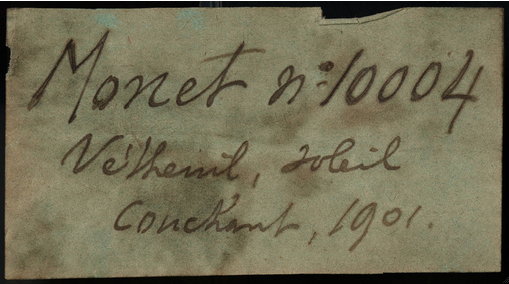 Monet n° 10004
Vétheuil, soleil
Couchant, 1901.